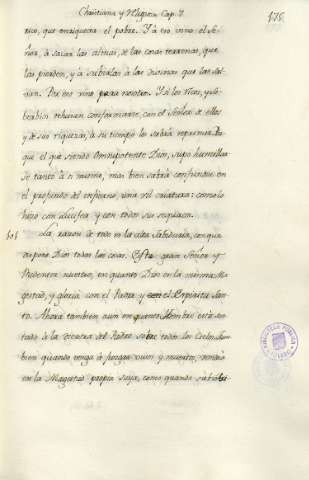 Christiana y Religiosa Cap. 7.
175
rico, que enriqueciera el pobre. Y á eso vino el Se-
ñor, á sacar las almas, de las cosas terrenas, que
las pierden, y á subirlas á las divinas que las sal-
van. Por eso vino para nosotros. Y si los ricos, y so-
berbios rehusan conformarse con el Señor de ellos
y de sus riquezas, á su tiempo los sabrá reprimir. Por-
que el que siendo Omnipotente Dios, supo humillar-
se tanto á si mismo, mas bien sabrá confundir en
el profundo del infierno, una vil criatura: como lo
hizo con Lucifer y con todos sus sequaces.
La razon de esto es la alta Sabiduría, con que
dispone Dios todas las cosas. Este gran Señor y
Redentor nuestro, en quanto Dios en la misma Ma-
gestad, y gloria con el Padre y con el Espiritu San-
to. Ahora tambien aun en quanto Hombre está sen-
tado á la diestra del Padre sobre todos los Cielos. Tam-
bien quando venga á juzgar vivos y muertos, vendrá
en la Magestad propia suya, como quando subió